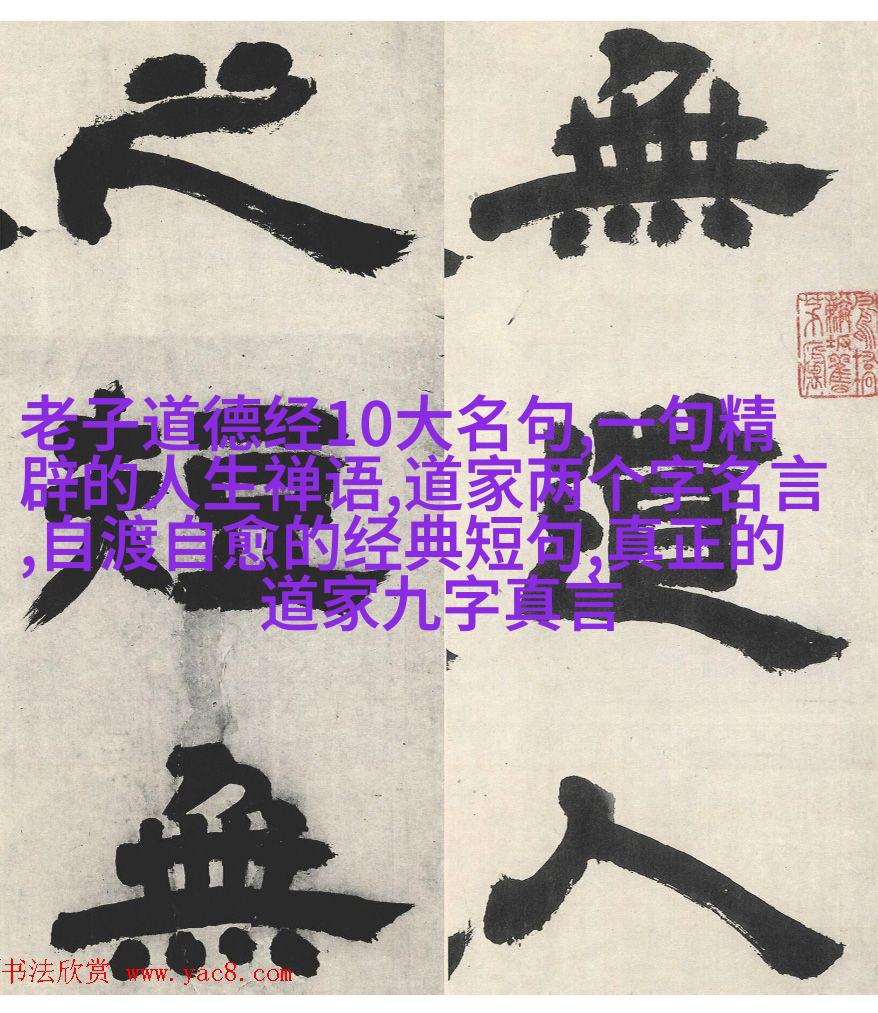 無道人
之短無
老子道德经10大名句,一句精
辟的人生禅语,道家两个字名言
,自渡自愈的经典短句,真正的
道家九字真言
书法欣赏 www.yac8.com